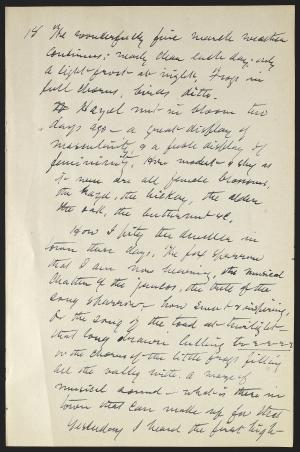 18 The wonderfully fine March weather
continues; nearly clear each day; only
a light frost at night, Frogs in
full chorus, birds ditto.
Hazel nut in bloom two
days ago — a great display of
masculinity, & a feeble display of
femininity. How modest & shy as
a rule are all female blossoms,
the hazel, the hickory, the alder
the oak, the butternut &c.
How I pity the dweller in
town these days. The fox sparrow
that I am now hearing, the musical
chatter of the juncos, the lute of the
song sparrow — how sweet & inspiring,
Or the song of the toad at twilight —
that long drawn lulling tr-r-r-r-r
or the chorus of the little frogs filling
all the valley with a maze of
musical sound — what is there in
town that can make up for that
Yesterday I heard the first high-